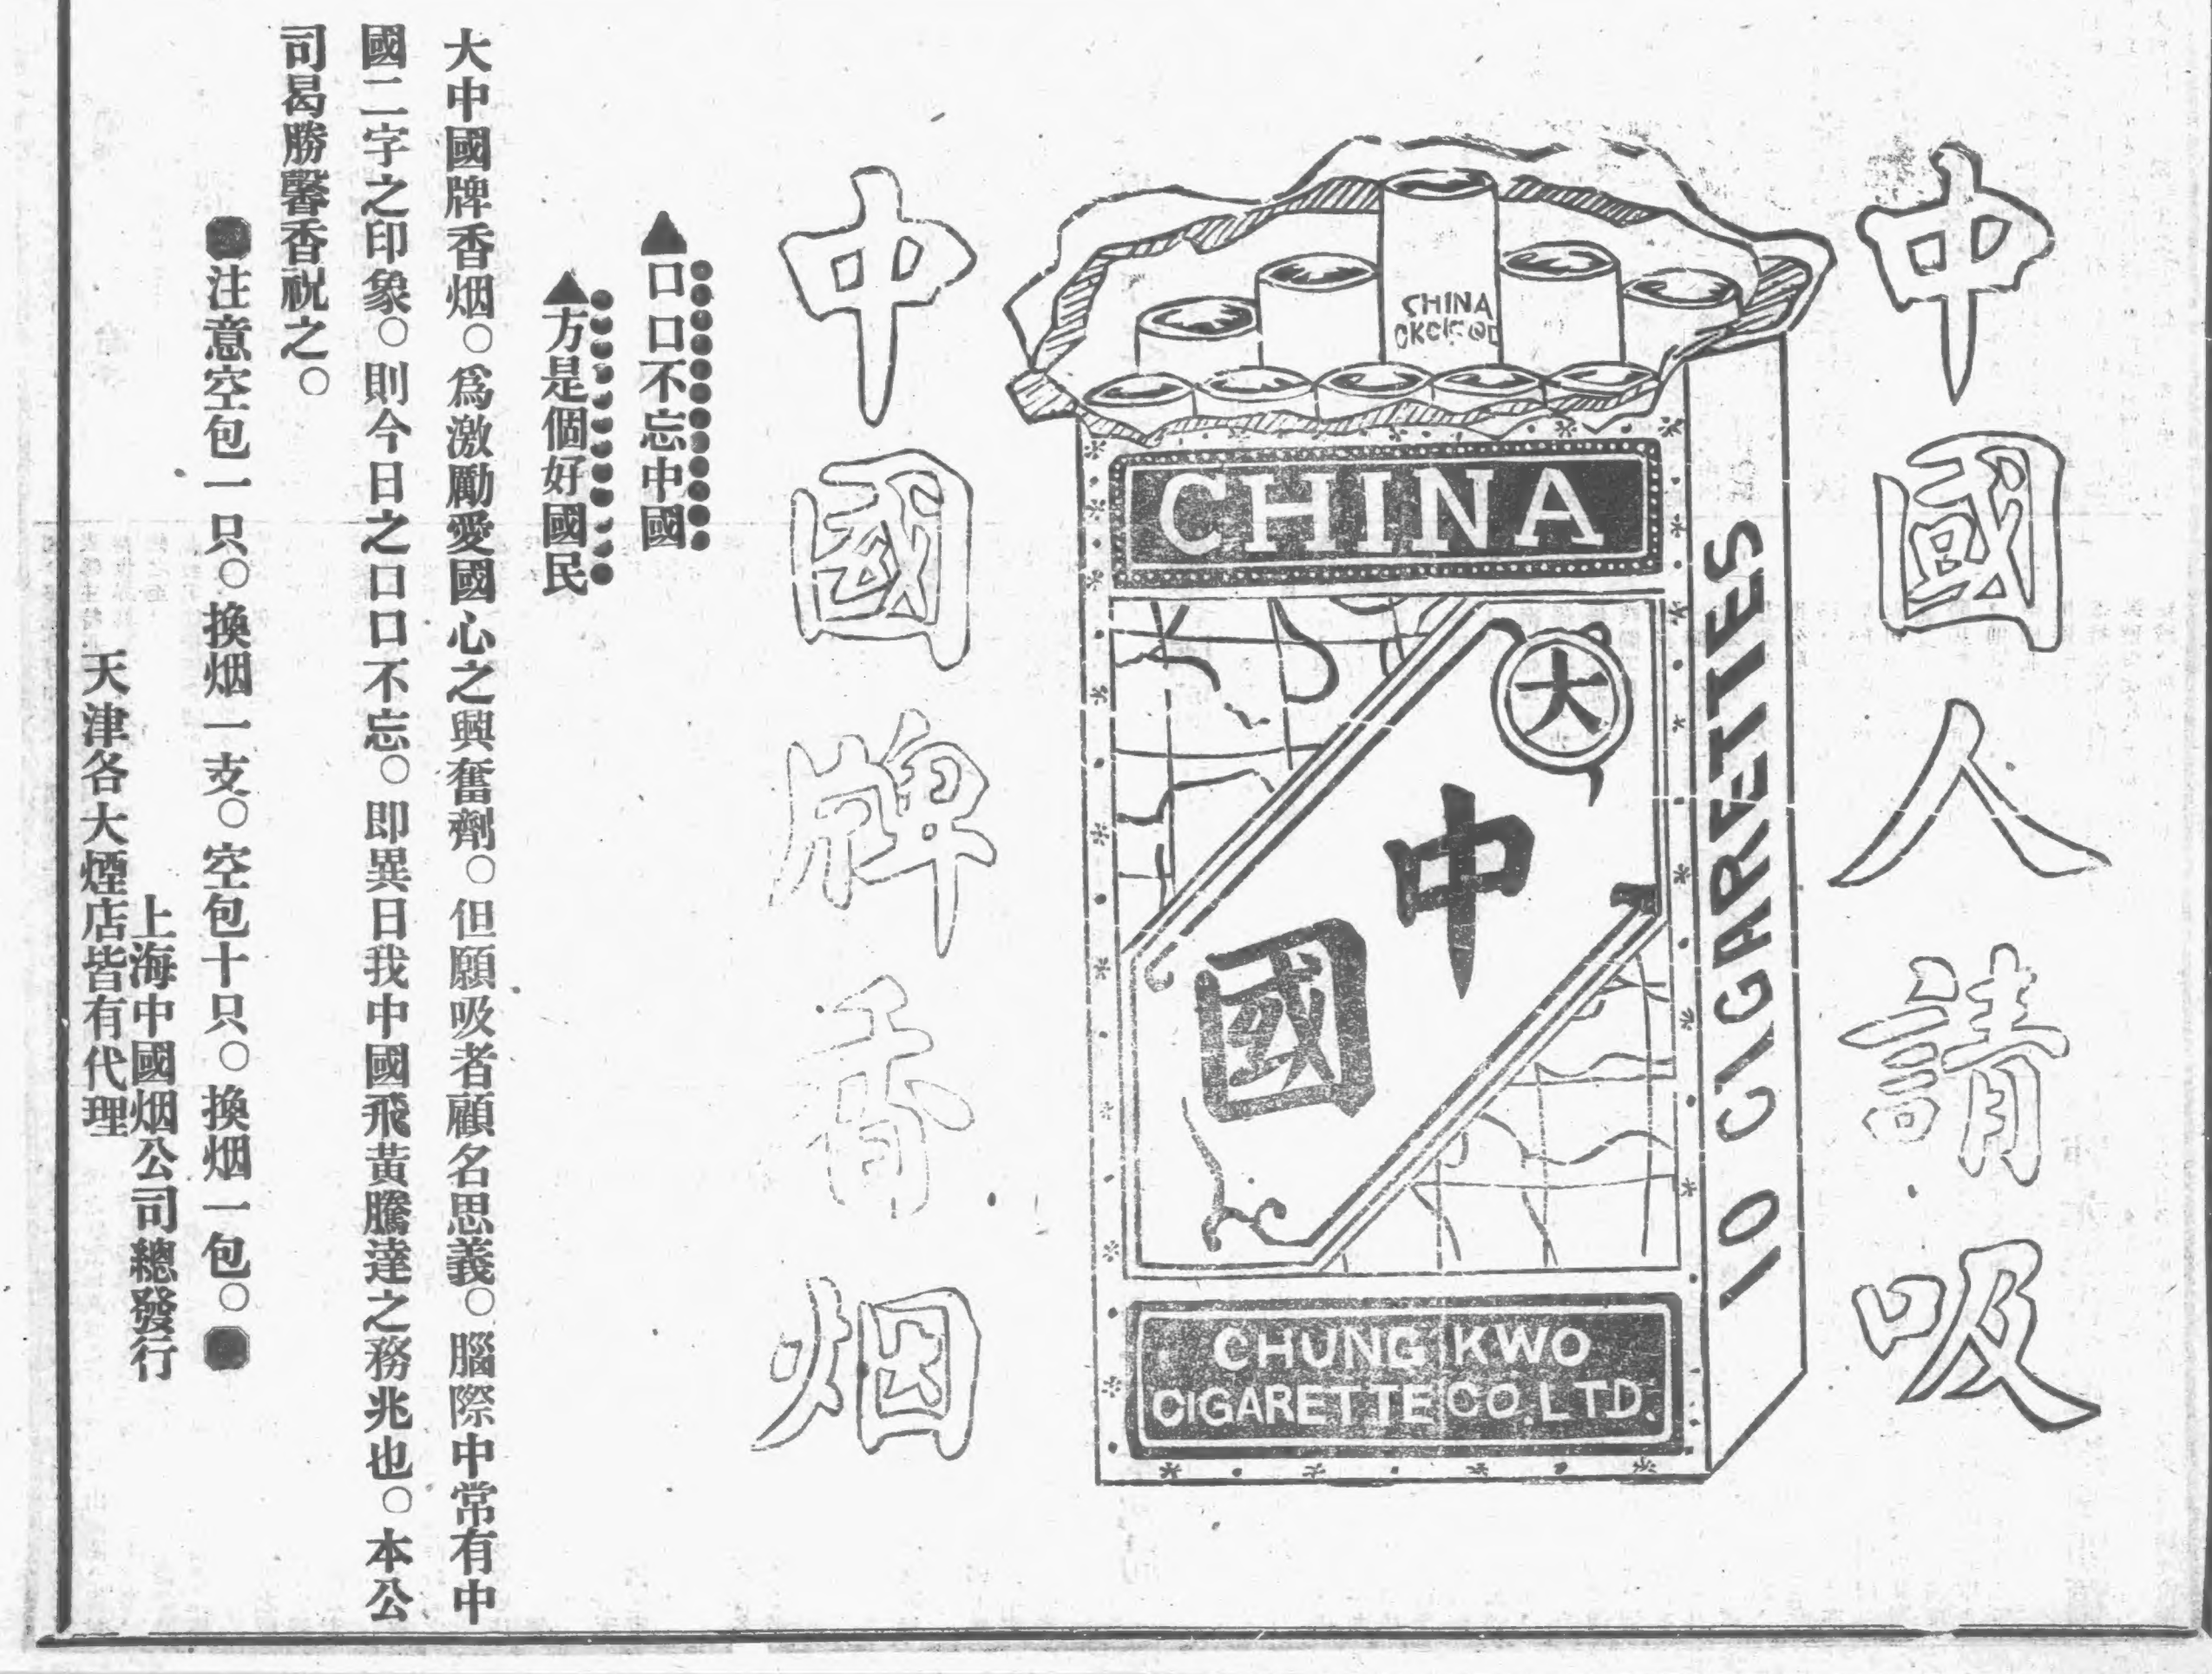 中國人請吸
CHINA
CHINA
大
中國
CHUNG KWO
CIGARETTE CO. LTD.
10 CIGARETTES
中國牌香烟
▲口口不忘中國
▲方是個好國民
大中國牌香烟。爲激勵愛國心之興奮劑。但願吸者顧名思義。腦際中常有中
國二字之印象。則今日之口口不忘。即異日我中國飛黃騰達之務兆也。本公
司曷勝馨香祝之。
●注意空包一只。換烟一支。空包十只。換烟一包。●
上海中國烟公司總發行
天津各大煙店皆有代理